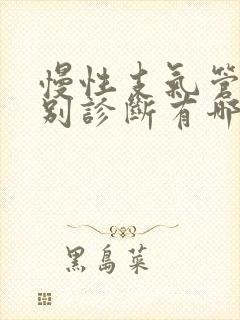 慢性支氣管
別診斷有哪
黑島菜